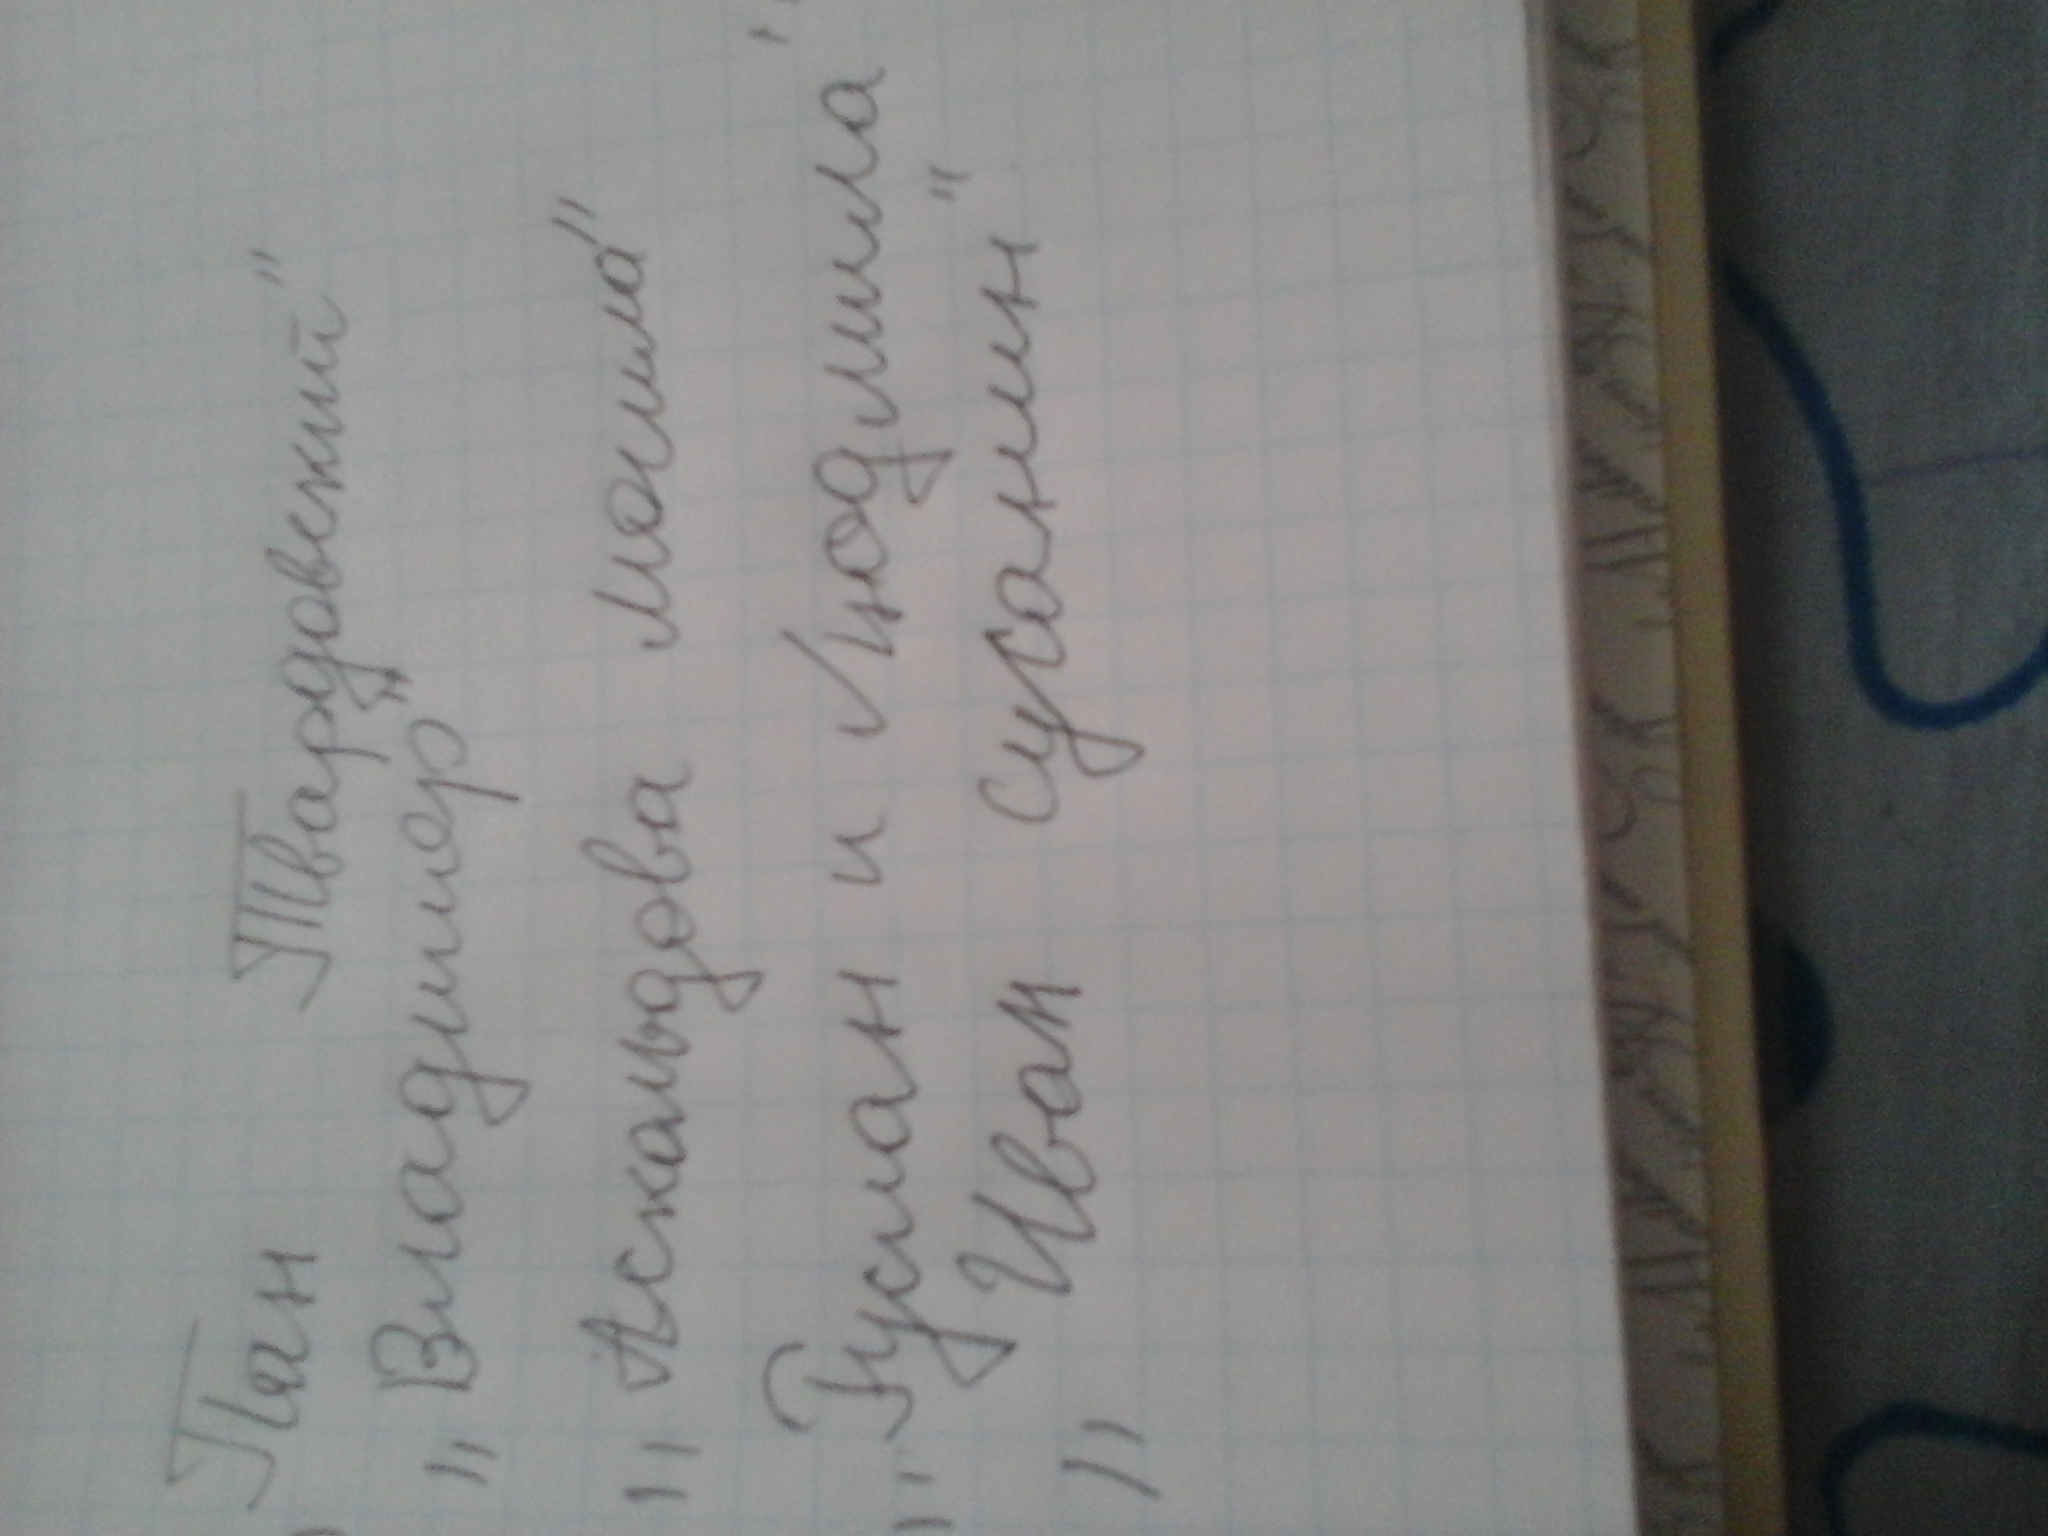 „Пан Твардовский"
„Владимир"
„Аскальдова могила"
„Руслан и Людмила"
„Иван сусанин"